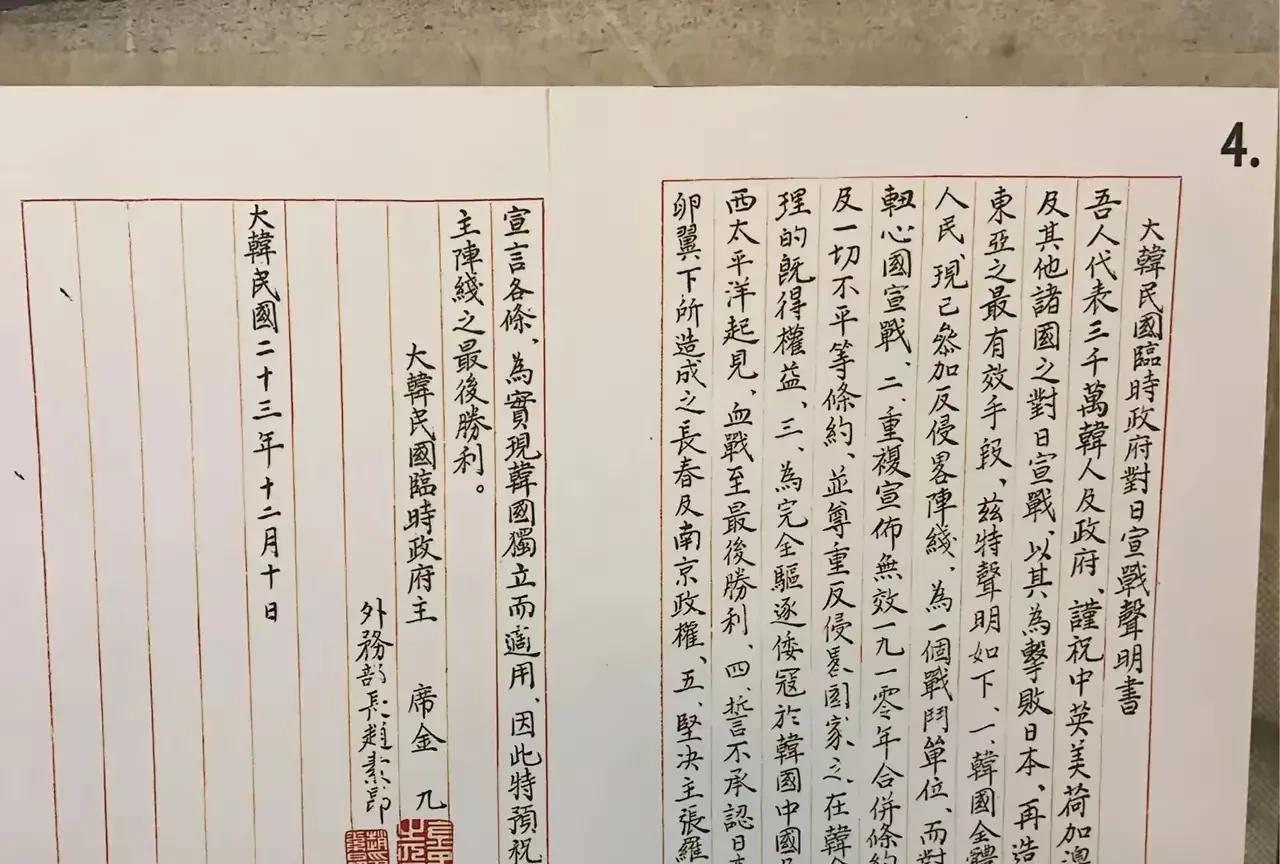 4.
大韓民國臨時政府對日宣戰聲明書
吾人代表三千萬韓人及政府、謹祝中英美荷加澳
及其他諸國之對日宣戰、以其為擊敗日本、再造
東亞之最有效手段、茲特聲明如下、一、韓國全體
人民、現已參加反侵畧陣綫、為一個戰鬥單位、而對
軸心國宣戰、二、重複宣佈無效一九一零年合併條約
及一切不平等條約、並尊重反侵畧國家之在韓合
理的既得權益、三、為完全驅逐倭寇於韓國中國
西太平洋起見、血戰至最後勝利、四、誓言不承認日本
卵翼下所造成之長春及南京政權、五、堅決主張羅
宣言各條、為實現韓國獨立而適用、因此特預祝
主陣綫之最後勝利。
大韓民國臨時政府主 席金 九
外務部長趙素昂
大韓民國二十三年十二月十日